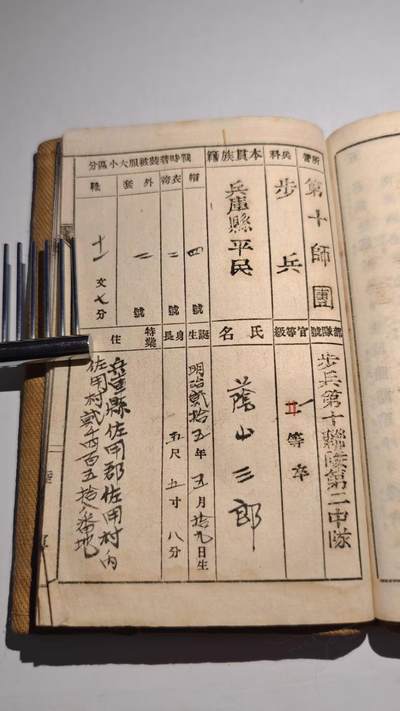 所管
第十師團
兵科
步兵
本貫族籍
兵庫縣平民
戰時着裝被服大小區分
帽
四號
衣袴
二號
外套
二號
靴
十一文七分
隊號
步兵第十聯隊第二中隊
官等級
等卒
氏名
蔭山三郎
誕生
明治貳拾五年五月拾九日生
身長
五尺五寸八分
特業
住
兵庫縣佐用郡佐用村内
佐用村貳千四百五拾八番地